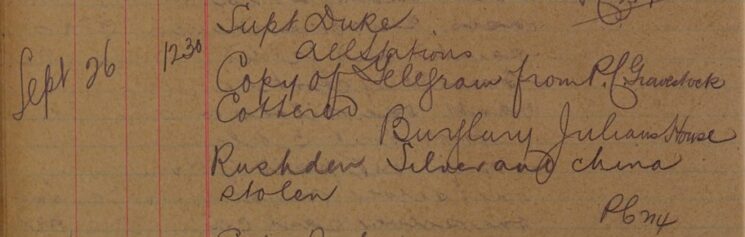 Supt Duke
Sept 26 1230 All Stations
Copy of Telegram from P.C Gravestock
Cottered
Burglary Julians House
Rushden Silver and china
stolen
PC